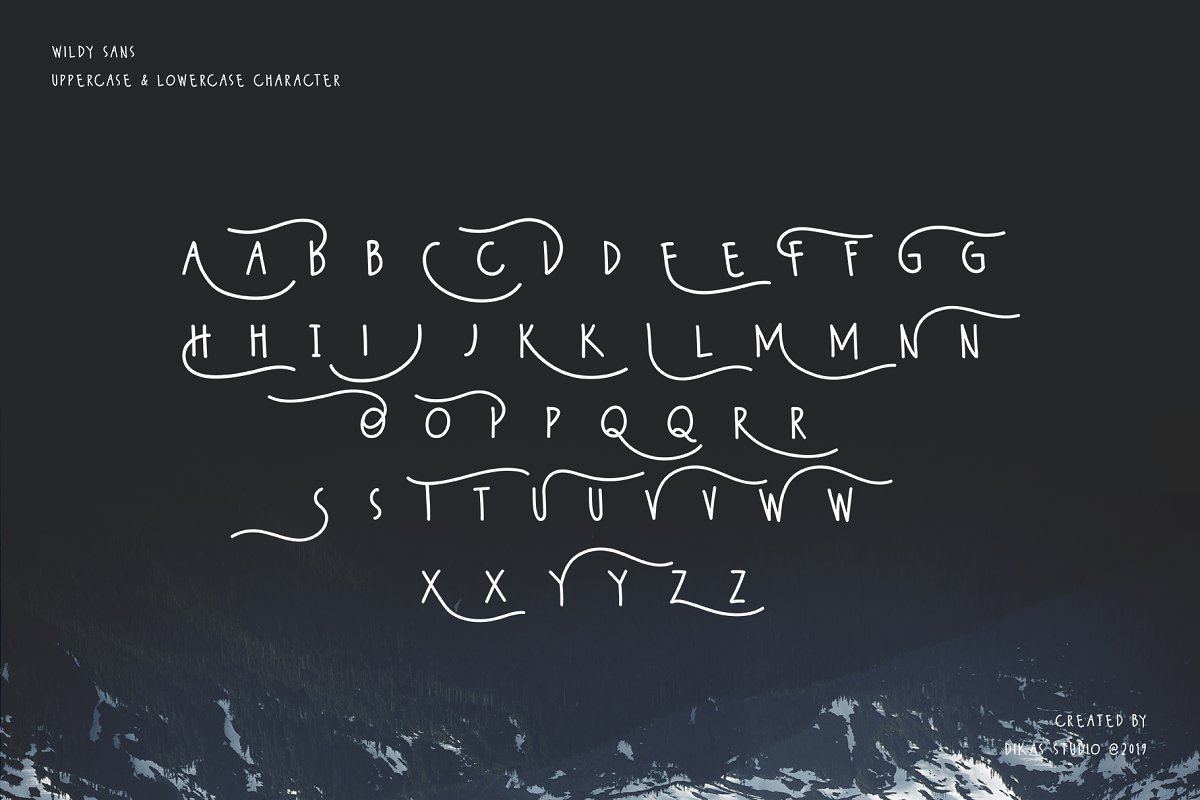 WILDY SANS
UPPERCASE & LOWERCASE CHARACTER
A A B B C C D D E E F F G G
H H I I J J K K L L M M N N
O O P P Q Q R R
S S T T U U V V W W
X X Y Y Z Z
CREATED BY
DIKAS STUDIO ©2019